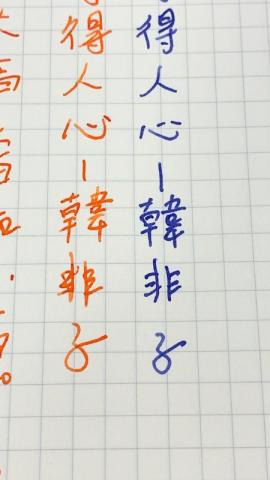 得人心－韓非子
得人心－韓非子